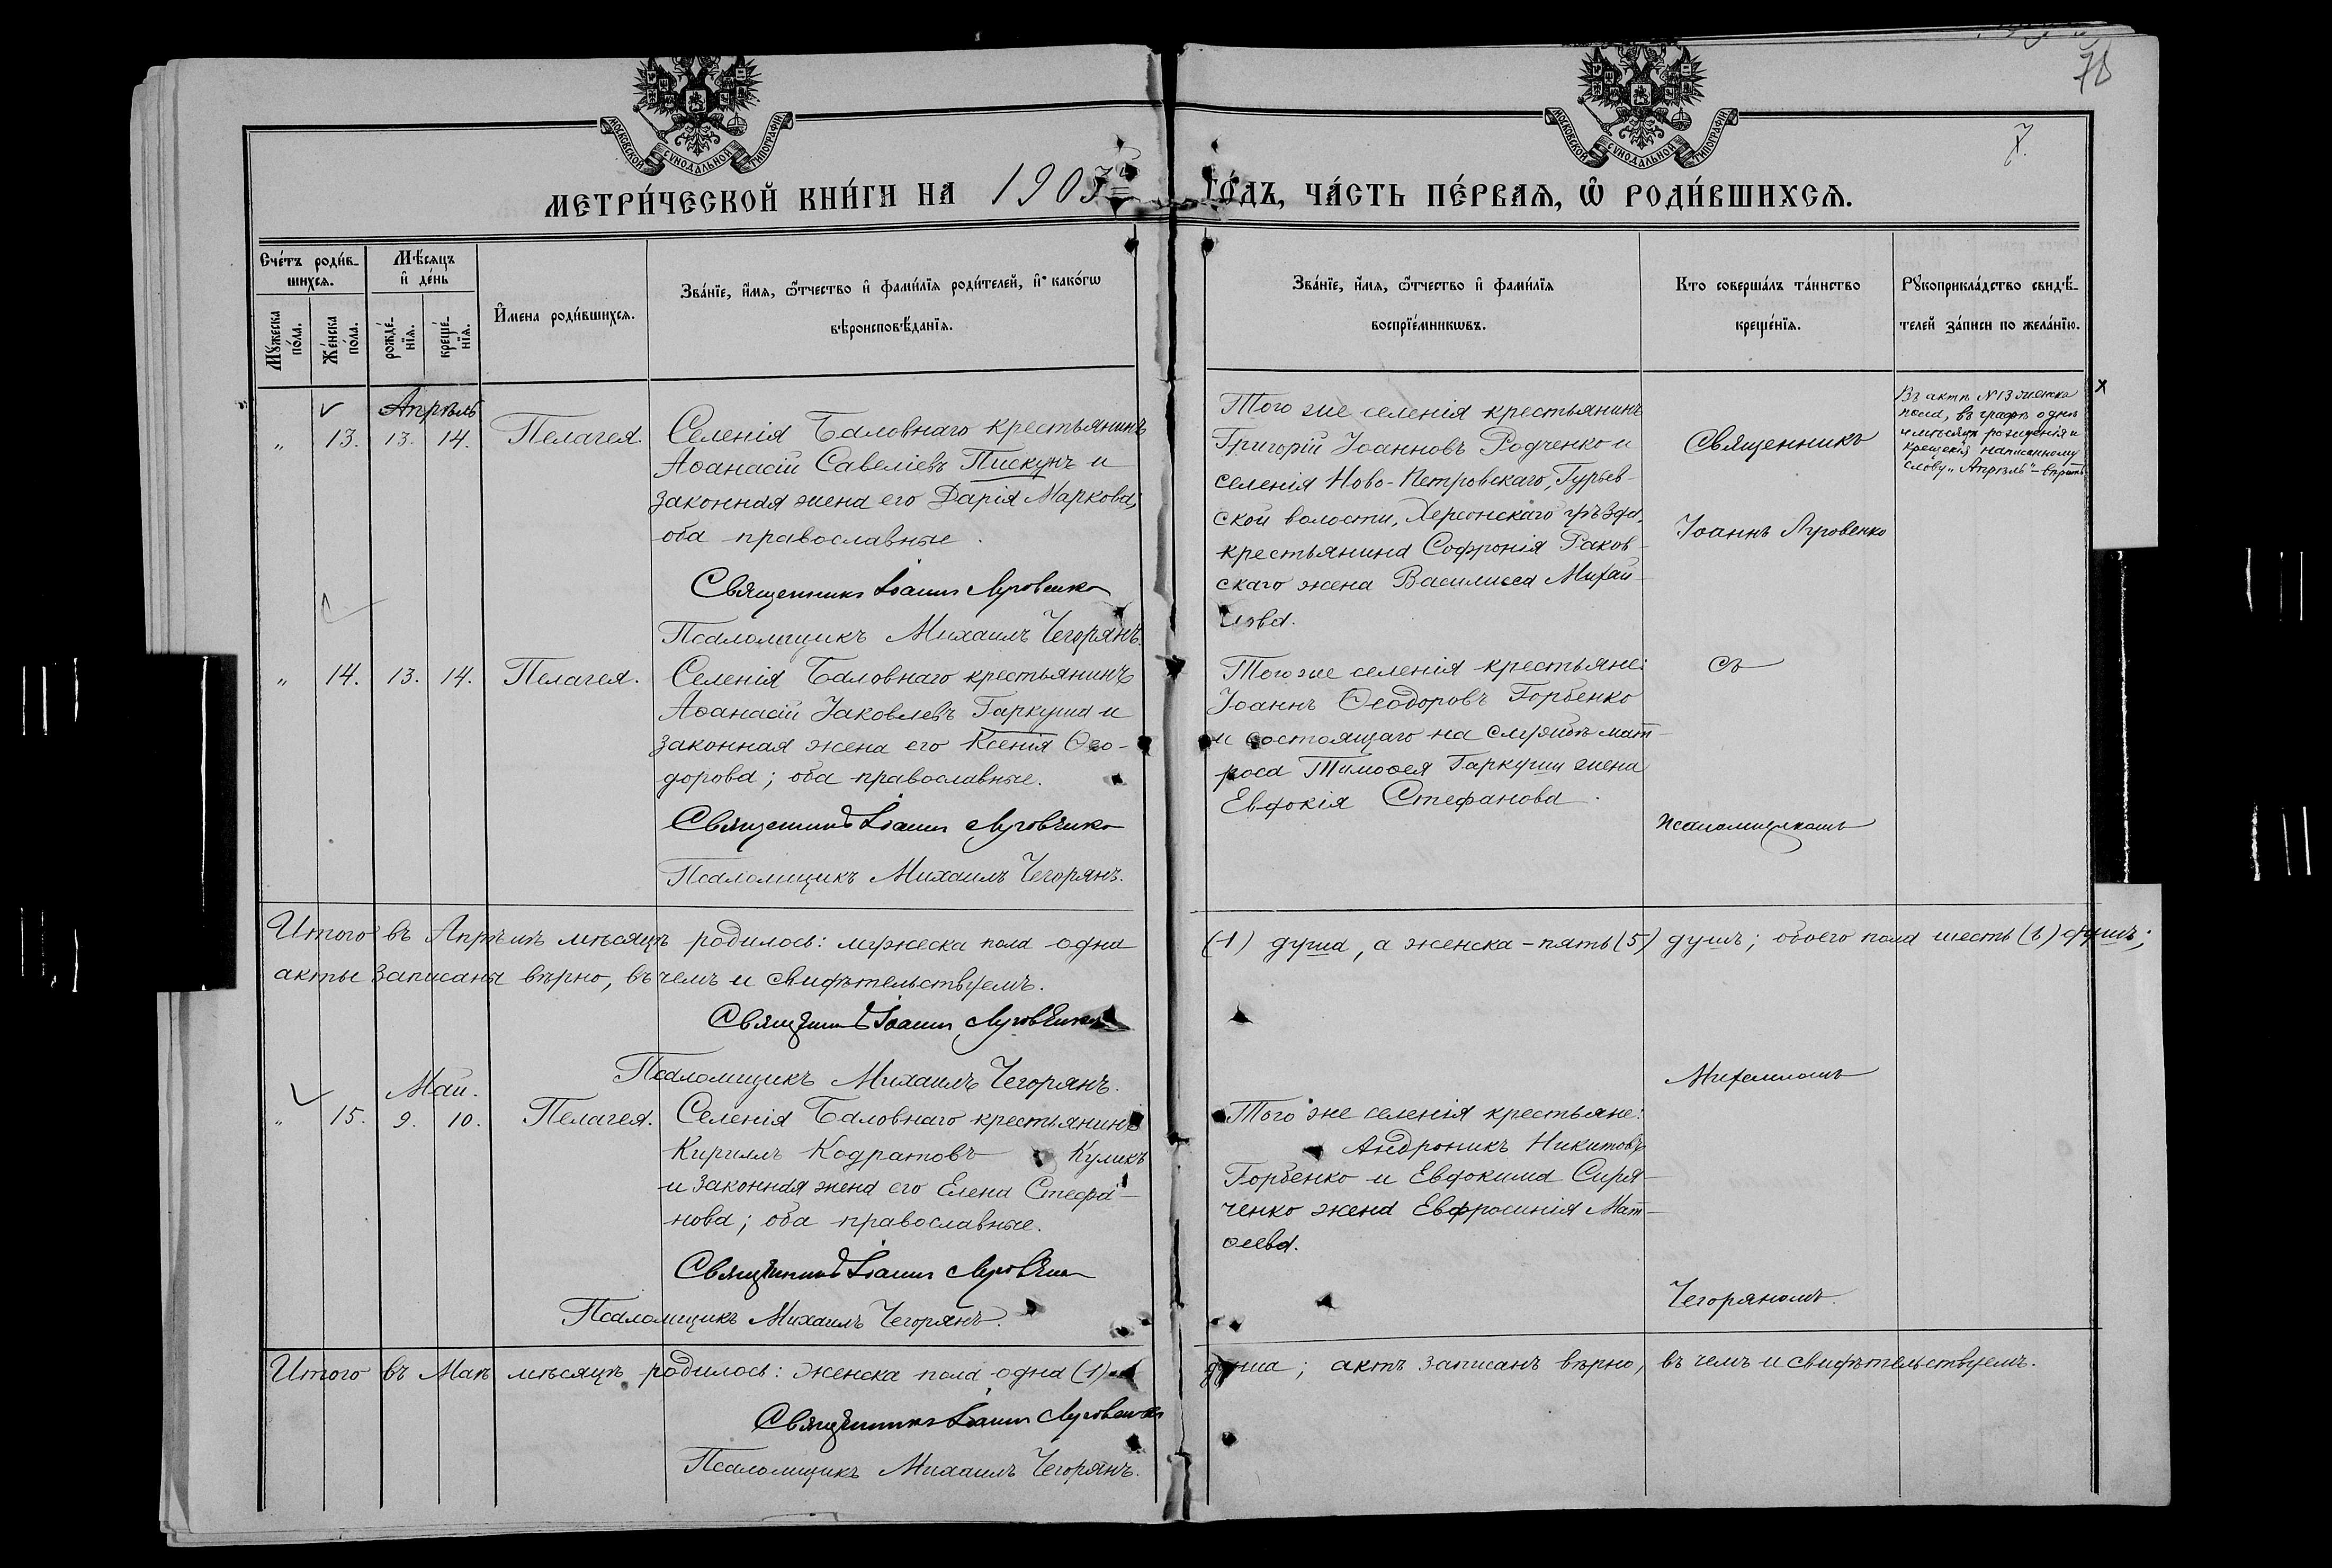 78
7.
МОСКОВСКОЙ СУНОДАЛЬНОЙ ТИПОГРАФІИ
МОСКОВСКОЙ СУНОДАЛЬНОЙ ТИПОГРАФІИ
МЕТРИ́ЧЕСКОЙ КНИ́ГИ НА 1903 ГО́ДЪ, ЧА́СТЬ ПЕ́РВАѦ, Ѡ҆ РОДИ́ВШИХСѦ.
Сче́тъ роди́в-
шихсѧ.
Мꙋ́жеска
по́ла.
Же́нска
по́ла.
Мѣ́сѧцъ
и҆ де́нь
рожде́-
нїѧ.
креще́-
нїѧ.
И҆мена роди́вшихсѧ.
Зва́нїе, и҆́мѧ, ѻ҆́тчество и҆ фами́лїѧ роди́телей, и҆ како́гѡ
вѣроисповѣ́данїѧ.
Зва́нїе, и҆́мѧ, ѻ҆́тчество и҆ фами́лїѧ
воспрїе́мникѡвъ.
Кто соверша́лъ та́инство
креще́нїѧ.
Рꙋкоприкла́дство свидѣ́-
телей за́писи по жела́нїю.
Апрѣль
" 13. 13. 14. Пелагея.
Селенія Баловнаго крестьянинъ
Аѳанасій Савеліевъ Пискунъ и
законная жена его Дарія Маркова;
оба православные.
Священникъ Іоаннъ Луговенко
Псаломщикъ Михаилъ Чегорянъ.
Того же селенія крестьянинъ
Григорій Іоанновъ Родченко и
селенія Ново-Петровскаго, Гурьев-
ской волости, Херсонскаго уѣзда,
крестьянина Софронія Раков-
скаго жена Василисса Михай-
лова.
Священникъ
Іоаннъ Луговенко
Въ актѣ №13 женска
пола, въ графѣ о днѣ
и мѣсяцѣ рожденія и
крещенія написанному
слову „Апрѣль" – вѣрить.
" 14. 13. 14. Пелагея.
Селенія Баловнаго крестьянинъ
Аѳанасій Іаковлевъ Гаркуша и
законная жена его Ксенія Ѳео-
дорова; оба православные.
Священникъ Іоаннъ Луговенко
Псаломщикъ Михаилъ Чегорянъ.
Того же селенія крестьяне:
Іоаннъ Ѳеодоровъ Горбенко
и состоящаго на службѣ мат-
роса Тимоѳея Гаркуши жена
Евдокія Стефанова.
съ
псаломщикомъ
Итого въ Апрѣлѣ мѣсяцѣ родилось: мужеска пола одна (1) душа, а женска – пять (5) душъ; обоего пола шесть (6) душъ;
акты записаны вѣрно, въ чемъ и свидѣтельствуемъ.
Священникъ Іоаннъ Луговенко
Псаломщикъ Михаилъ Чегорянъ.
Михаиломъ
Май.
" 15. 9. 10. Пелагея.
Селенія Баловнаго крестьянинъ
Кириллъ Кодратовъ Куликъ
и законная жена его Елена Стефа-
нова; оба православные.
Священникъ Іоаннъ Луговенко
Псаломщикъ Михаилъ Чегорянъ.
Того же селенія крестьяне:
Андроникъ Никитовъ
Горбенко и Евдокима Сиря-
ченко жена Евфросинія Мат-
ѳеева.
Чегоряномъ.
Итого въ Маѣ мѣсяцѣ родилось: женска пола одна (1) душа; актъ записанъ вѣрно, въ чемъ и свидѣтельствуемъ.
Священникъ Іоаннъ Луговенко
Псаломщикъ Михаилъ Чегорянъ.